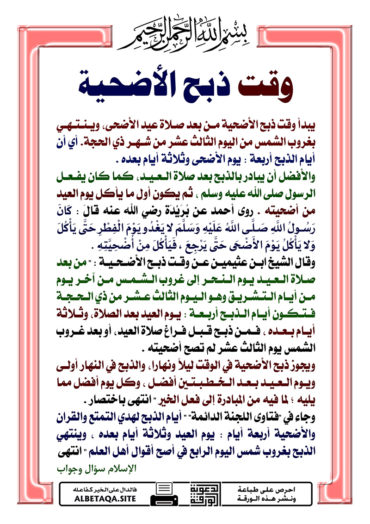 بسم الله الرحمن الرحيم
وقت ذبح الأضحية
يبدأ وقت ذبح الأضحية من بعد صلاة عيد الأضحى، وينتهي
بغروب الشمس من اليوم الثالث عشر من شهر ذي الحجة. أي أن
أيام الذبح أربعة : يوم الأضحى وثلاثة أيام بعده .
والأفضل أن يبادر بالذبح بعد صلاة العيد، كما كان يفعل
الرسول صلى الله عليه وسلم ، ثم يكون أول ما يأكل يوم العيد
من أضحيته . روى أحمد عن بُرَيْدَةَ رضي الله عنه قال : كَانَ
رَسُولُ اللَّهِ صَلَّى اللَّهُ عَلَيْهِ وَسَلَّمَ لا يَغْدُو يَوْمَ الْفِطْرِ حَتَّى يَأْكُلَ
وَلا يَأْكُلُ يَوْمَ الأَضْحَى حَتَّى يَرْجِعَ ، فَيَأْكُلَ مِنْ أُضْحِيَّتِهِ .
وقال الشيخ ابن عثيمين عن وقت ذبح الأضحية : - من بعد
صلاة العيد يوم النحر إلى غروب الشمس من آخر يوم
من أيام التشريق وهو اليوم الثالث عشر من ذي الحجة
فتكون أيام الذبح أربعة : يوم العيد بعد الصلاة، وثلاثة
أيام بعده ، فمن ذبح قبل فراغ صلاة العيد، أو بعد غروب
الشمس يوم الثالث عشر لم تصح أضحيته .
ويجوز ذبح الأضحية في الوقت ليلاً ونهاراً، والذبح في النهار أولى
ويوم العيد بعد الخطبتين أفضل ، وكل يوم أفضل مما
يليه ؛ لما فيه من المبادرة إلى فعل الخير - انتهى باختصار .
وجاء في -فتاوى اللجنة الدائمة- - أيام الذبح لهدي التمتع والقران
والأضحية أربعة أيام : يوم العيد وثلاثة أيام بعده ، وينتهي
الذبح بغروب شمس اليوم الرابع في أصح أقوال أهل العلم - انتهى
الإسلام سؤال وجواب
احرص على طباعة
ونشر هذه الورقة
الدعوية
الورقة
فالدال على الخير كفاعله
ALBETAQA.SITE